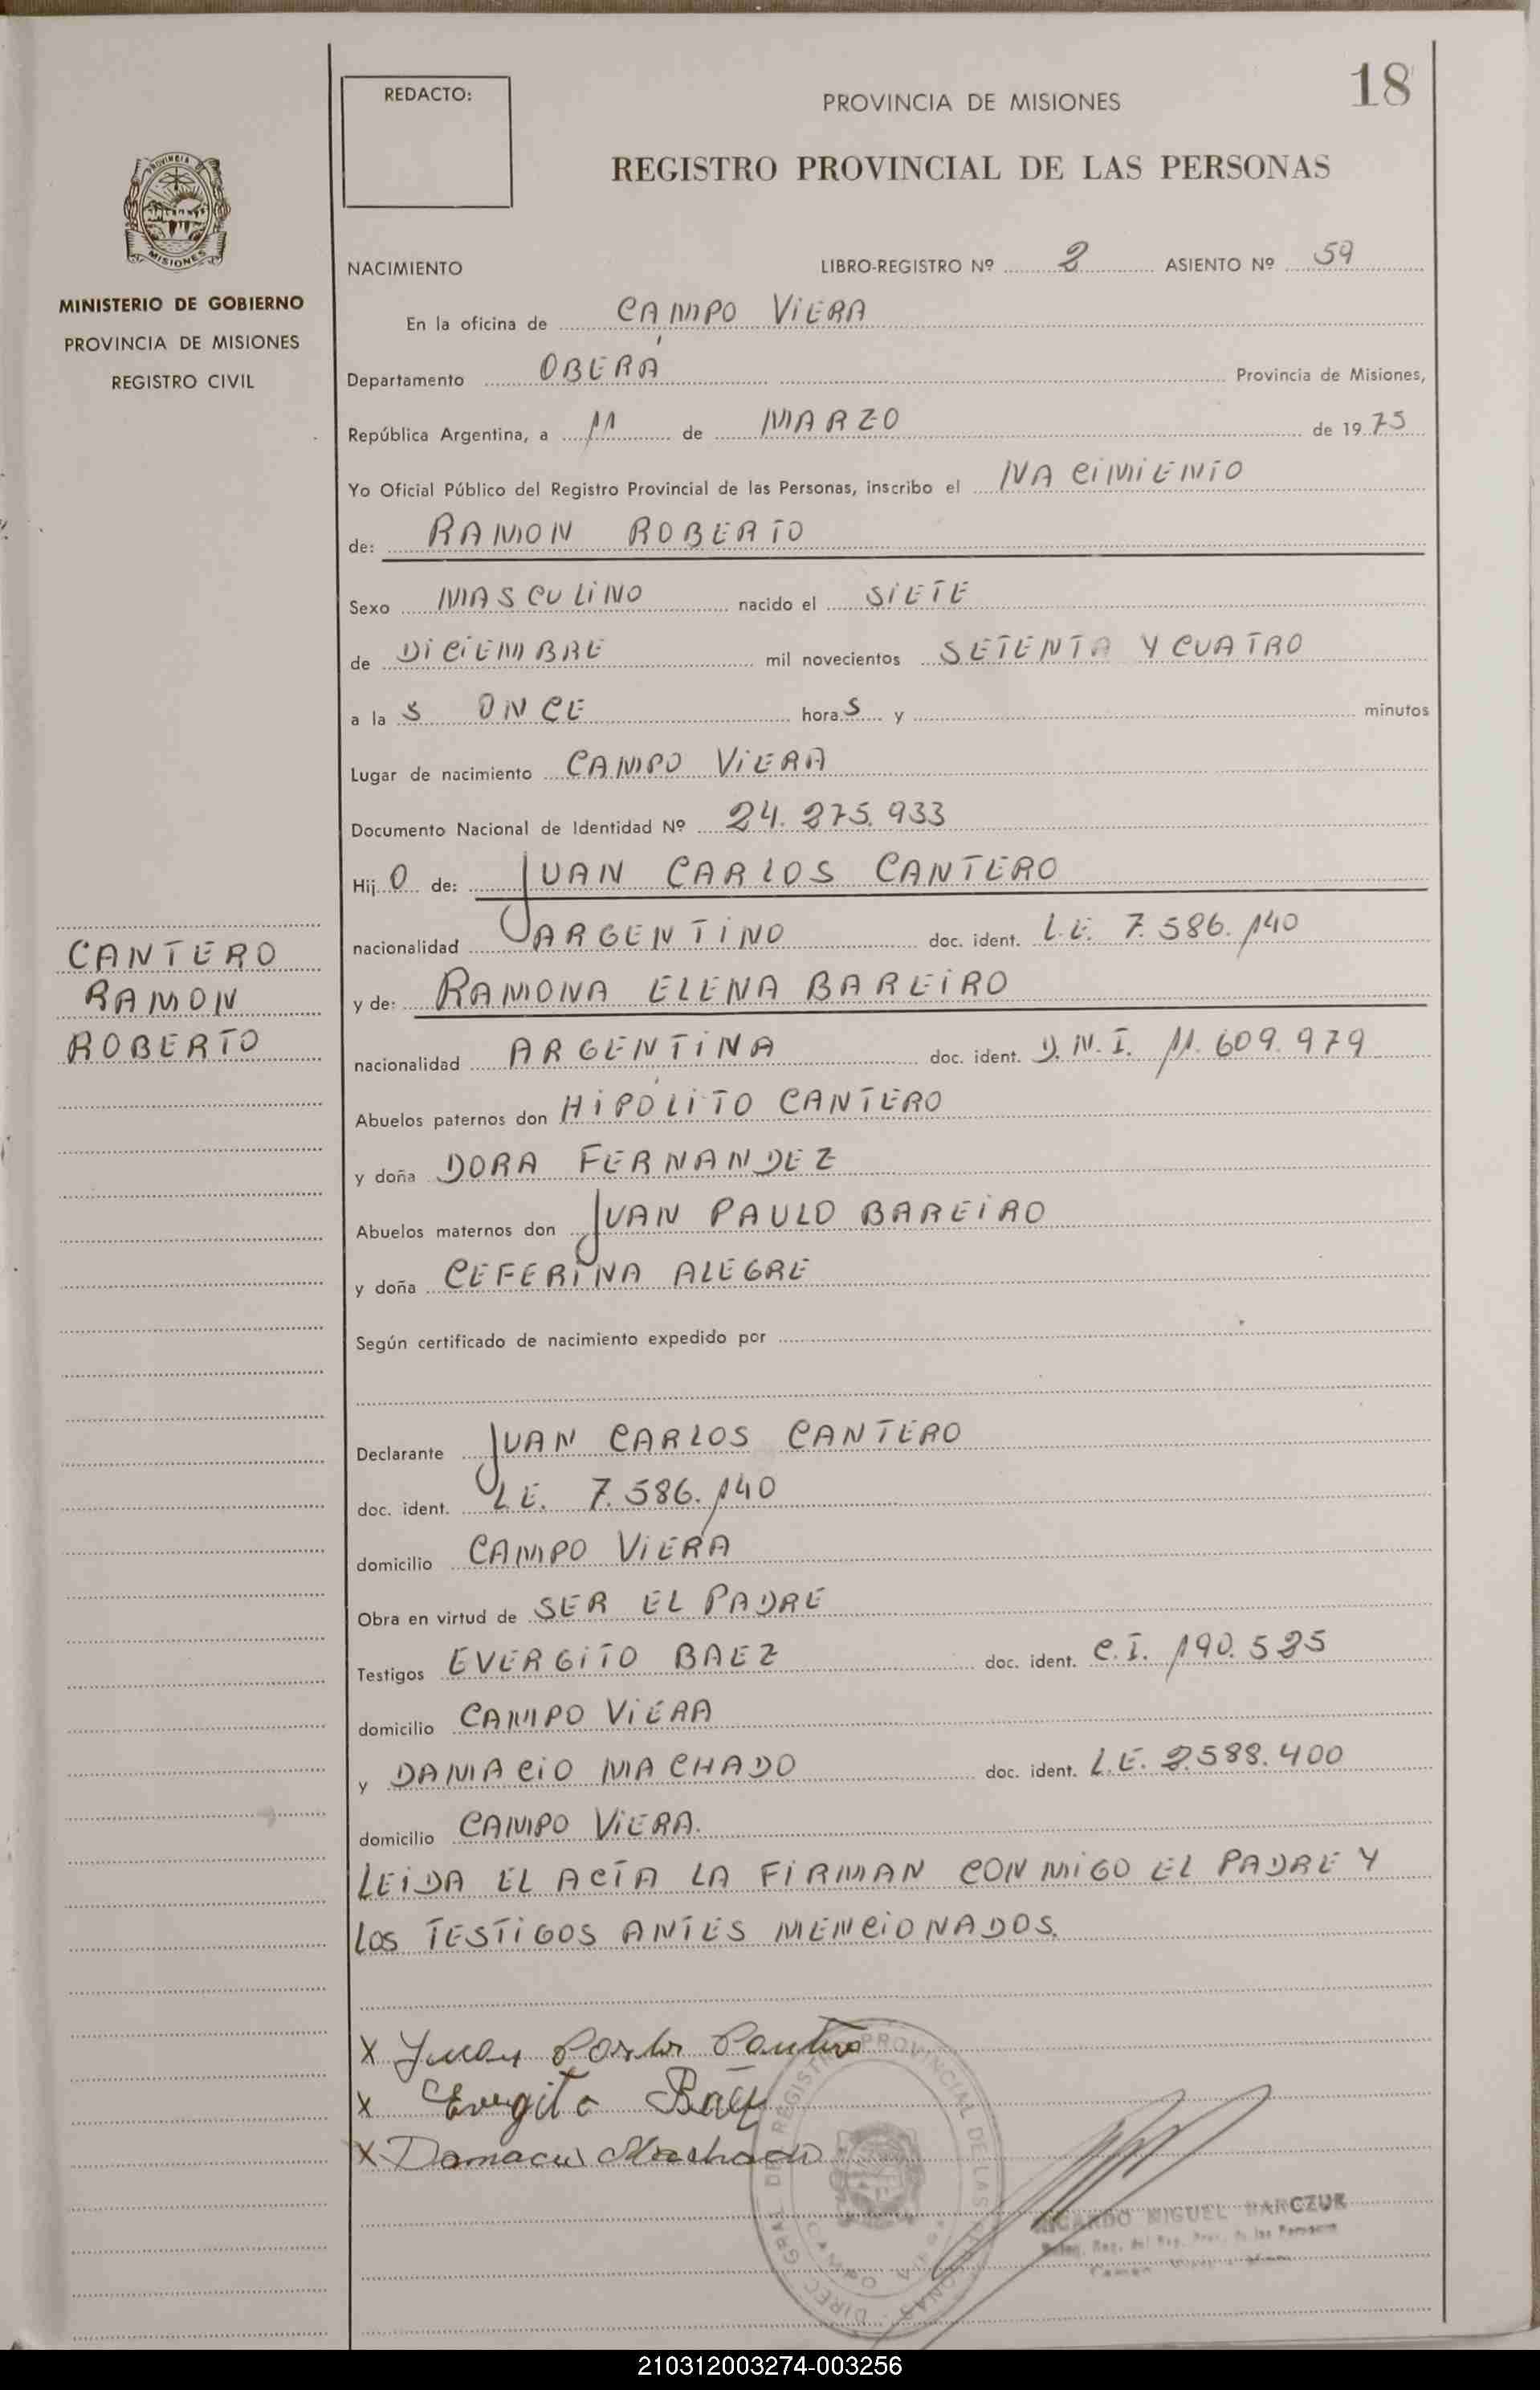 REDACTO:
PROVINCIA DE MISIONES
18
REGISTRO PROVINCIAL DE LAS PERSONAS
PROVINCIA DE
MISIONES
MINISTERIO DE GOBIERNO
PROVINCIA DE MISIONES
REGISTRO CIVIL
NACIMIENTO LIBRO-REGISTRO Nº 2 ASIENTO Nº 59
En la oficina de CAMPO VIERA
Departamento OBERÁ Provincia de Misiones,
República Argentina, a 11 de MARZO de 1975
Yo Oficial Público del Registro Provincial de las Personas, inscribo el NACIMIENTO
de: RAMON ROBERTO
Sexo MASCULINO nacido el SIETE
de DICIEMBRE mil novecientos SETENTA Y CUATRO
a la S ONCE hora S y minutos
Lugar de nacimiento CAMPO VIERA
Documento Nacional de Identidad Nº 24.275.933
Hij O de: JUAN CARLOS CANTERO
nacionalidad ARGENTINO doc. ident. L.E. 7.586.140
y de: RAMONA ELENA BAREIRO
nacionalidad ARGENTINA doc. ident. D.N.I. 11.609.979
CANTERO
RAMON
ROBERTO
Abuelos paternos don HIPÓLITO CANTERO
y doña DORA FERNANDEZ
Abuelos maternos don JUAN PAULO BAREIRO
y doña CEFERINA ALEGRE
Según certificado de nacimiento expedido por
Declarante JUAN CARLOS CANTERO
doc. ident. L.E. 7.586.140
domicilio CAMPO VIERA
Obra en virtud de SER EL PADRE
Testigos EVERGITO BAEZ doc. ident. C.I. 190.525
domicilio CAMPO VIERA
y DAMACIO MACHADO doc. ident. L.E. 2.588.400
domicilio CAMPO VIERA.
LEIDA EL ACTA LA FIRMAN CONMIGO EL PADRE Y
LOS TESTIGOS ANTES MENCIONADOS.
X Juan Carlos Cantero
X Evergito Baez
X Damacio Machado
DIREC. GRAL. DE REGISTRO PROVINCIAL DE LAS PERSONAS
RICARDO MIGUEL BARCZUK
210312003274-003256